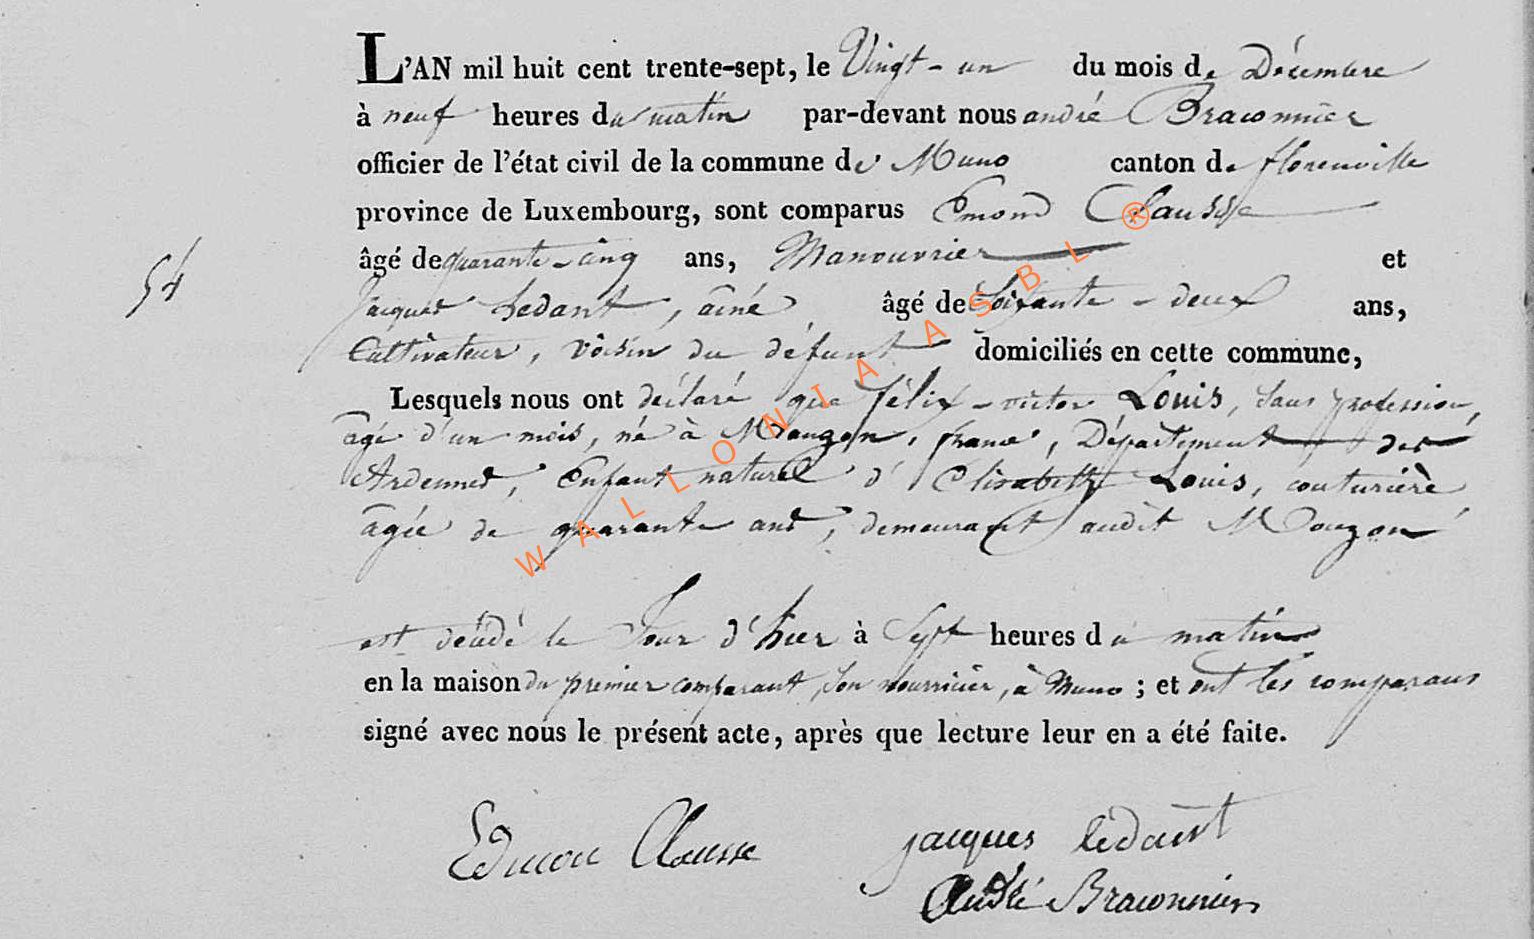 L'AN mil huit cent trente-sept, le Vingt-un du mois de Décembre
à neuf heures du matin par-devant nous andré Braconnier
officier de l'état civil de la commune de Muno canton de florenville
province de Luxembourg, sont comparus Emond Clausse
âgé de quarante-cinq ans, Manouvrier et
54
Jacques Ledant, aîné âgé de Soixante-deux ans,
Cultivateur, voisin du défunt domiciliés en cette commune,
Lesquels nous ont déclaré que félix-victor Louis, sans profession,
âgé d'un mois, né à Mouzon, france, Département des
Ardennes, Enfant naturel d'Elisabeth Louis, couturière
âgée de quarante ans, demeurant audit Mouzon
est décédé le Jour d'hier à Sept heures du matin
en la maison du premier comparant, son nourricier, à Muno ; et ont les comparans
signé avec nous le présent acte, après que lecture leur en a été faite.
Edmon Clausse jacques lédant
André Braconnier
WALLONIA ASBL ®